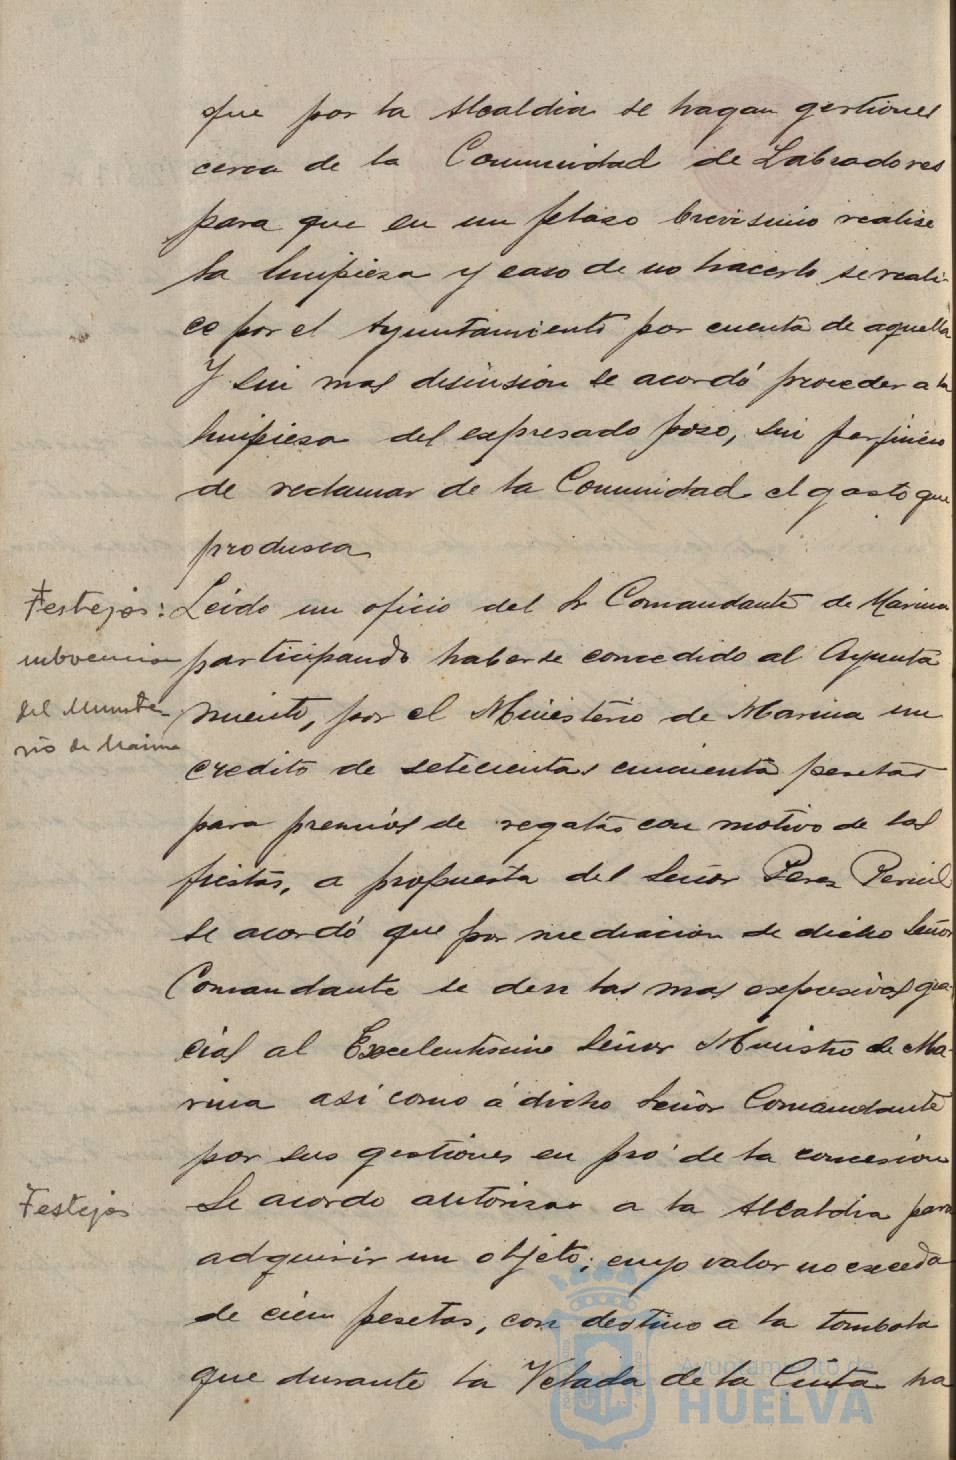 que por la Alcaldia se hagan gestiones
cerca de la Comunidad de Labradores
para que en un plazo brevisimo realise
la limpieza y caso de no hacerlo, se reali-
ce por el Ayuntamiento por cuenta de aquella
Y sin mas discusion se acordó proceder a la
limpieza del expresado pozo, sin perjuicio
de reclamar de la Comunidad el gasto que
produsca
Festejos:
subvencion
del Ministe-
rio de Marina
Leido un oficio del Sr Comandante de Marina
participando haberse concedido al Ayunta
miento, por el Ministerio de Marina un
credito de setecientas cincuenta pesetas
para premios de regatas con motivo de las
fiestas, a propuesta del Señor Perez
se acordó que por mediacion de dicho Señor
Comandante se den las mas expresivas gra-
cias al Excelentisimo Señor Ministro de Ma-
rina así como á dicho Señor Comandante
por sus gestiones en pró de la concesion
Festejos
Se acordo autorizar a la Alcaldia para
adquirir un objeto, cuyo valor no exceda
de cien pesetas, con destino a la tombola
que durante la Velada de la Cinta ha
Ayuntamiento de
HUELVA